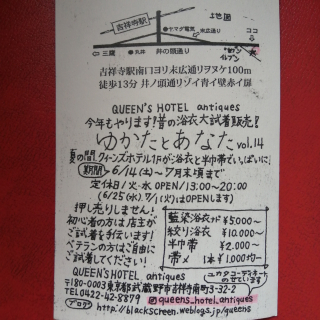 地図
吉祥寺駅
ヤマダ電気
末広通り
ココ
三鷹
丸井
井の頭通り
セブンイレブン
吉祥寺駅南口ヨリ末広通リヲヌケ100m
徒歩13分 井ノ頭通リゾイ青イ壁赤イ扉
QUEEN'S HOTEL antiques
今年もやります!昔の浴衣大試着販売!
ゆかたとあなた vol.14
夏の間、クィーンズホテル1Fが浴衣と半巾帯でいっぱいに!
期間 6/14(土)~7月末頃まで
定休日/火・水 OPEN/13:00~20:00
(6/25(水),7/1(火)はOPENします)
押し売りしません!
初心者の方は店主が
ご試着を手伝います!
ベテランの方はご自由に
ご試着ください!
藍染浴衣が ¥5,000~
絞り浴衣 ¥10,000~
半巾帯 ¥2,000~
帯〆 1本 ¥1,000均一
QUEEN'S HOTEL antiques
ユカタコーディネートのせています
〒180-0003 東京都武蔵野市吉祥寺南町3-32-2
TEL0422-42-8879 queens_hotel_antiques
ブログ http://blackscreen.weblogs.jp/queens